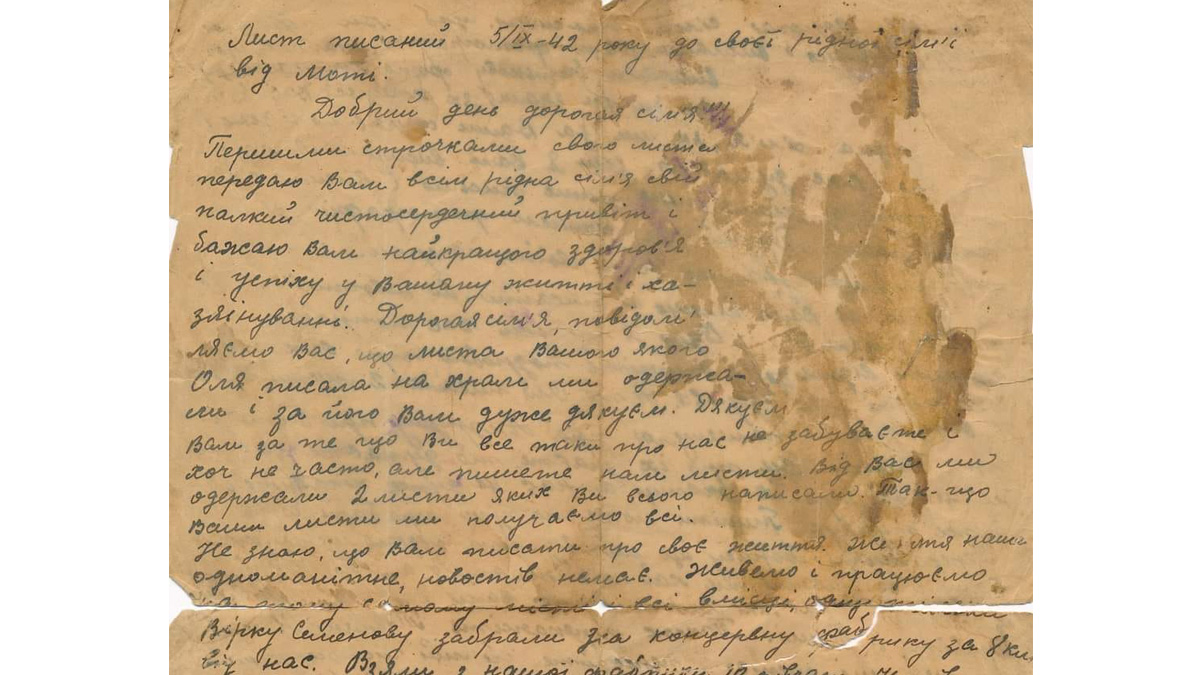 Лист писаний 5/IX-42 року до своєї рідної сім'ї
від Моті.
Добрий день дорогая сім'я!!!
Першими строчками свого листа
передаю Вам всім рідна сім'я свій
палкий чистосердечний привіт і
бажаю Вам найкращого здоров'я
і успіху у Вашому житті і ха-
зяінуванні. Дорогая сім'я, повідом
ляємо Вас, що листа Вашого якого
Оля писала на храм ми одержа-
ли і за його Вам дуже дякуєм. Дякуєм
Вам за те що Ви все таки про нас не забуваєте і
хоч не часто, але пишете нам листи. Від Вас ми
одержали 2 листи яких Ви всього написали. Так-що
Ваши листи ми получаємо всі.
Не знаю, що Вам писати про своє життя. Життя наше
одноманітне, новостів немає. Живемо і працюємо
тому самому місті і всі вмісці,
Вірку Семенову забрали на концервну фабрику за 8 км.
від нас. Взяли з нашої фабрики